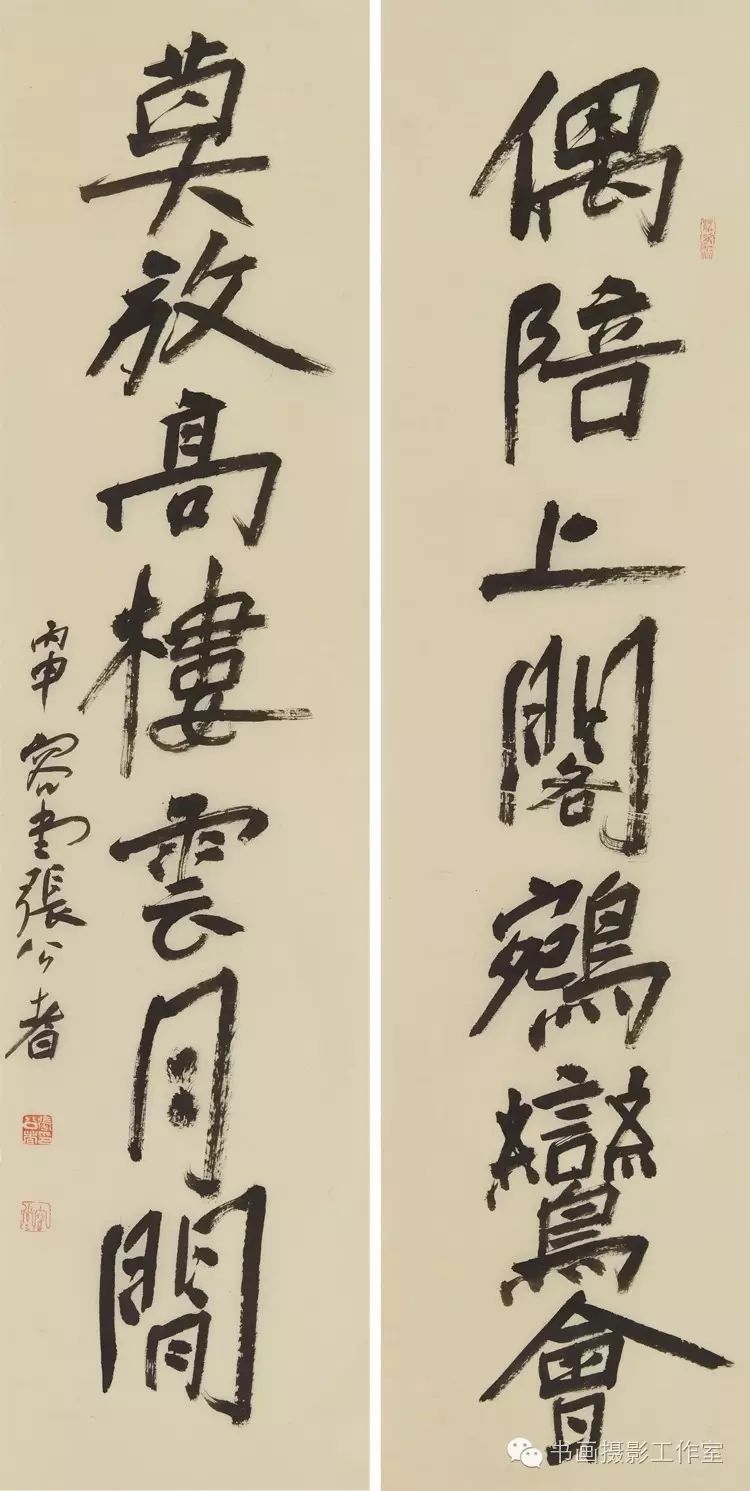 偶陪上閣鵷鸞會
莫放高樓雲月閒
丙申容堂張公者
书画摄影工作室